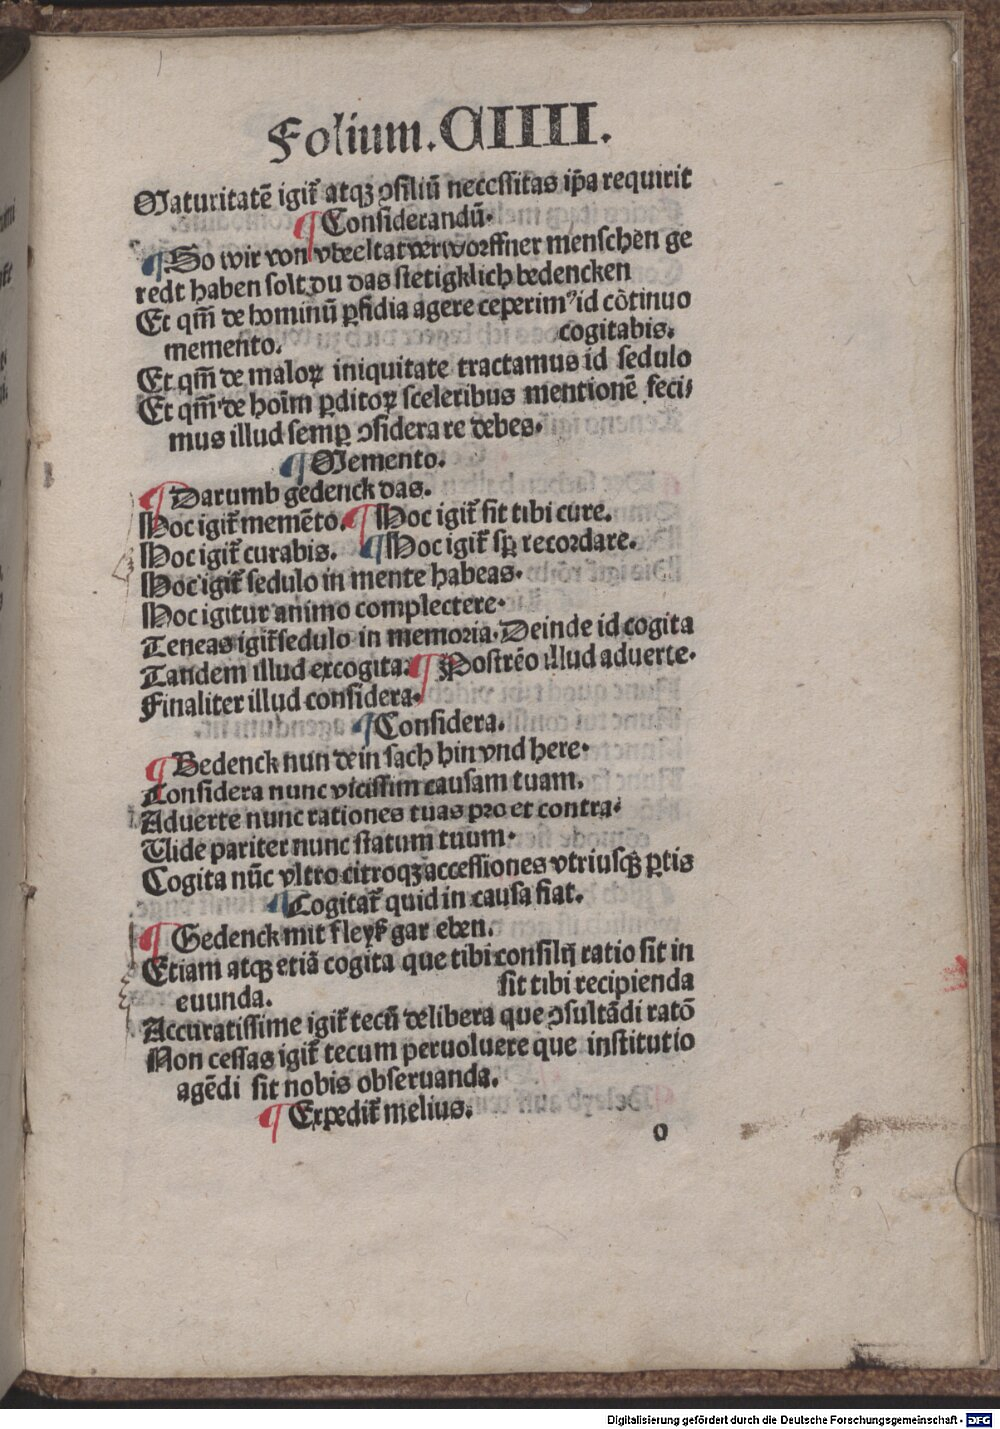 Folium. CIIIII.
Maturitatē igit᷑ atqꝫ ꝯsiliū necessitas ip̄a requirit
¶ Considerandū.
¶ So wir von vbeeltat verworffner menschen ge
redt haben solt du das stetigklich bedencken
Et qm̄ de hominū ꝑfidia agere ceperimꝰ id cōtinuo
memento. cogitabis.
Et qm̄ de maloꝝ iniquitate tractamus id sedulo
Et qm̄ de hoīm ꝑditoꝝ sceleribus mentionē feci⸗
mus illud semꝑ ꝯsiderare debes.
¶ Memento.
¶ Darumb gedenck das.
Hoc igit᷑ memēto. ¶ Hoc igit᷑ sit tibi cure.
Hoc igit᷑ curabis. ¶ Hoc igit᷑ sꝑ recordare.
Hoc igit᷑ sedulo in mente habeas.
Hoc igitur animo complectere.
Teneas igit᷑ sedulo in memoria. Deinde id cogita
Tandem illud excogita. ¶ Postrēo illud aduerte.
Finaliter illud considera.
¶ Considera.
¶ Bedenck nun dein sach hin vnd here.
Considera nunc vicissim causam tuam.
Aduerte nunc rationes tuas pro et contra.
Vide pariter nunc statum tuum.
Cogita nūc vltro citroqꝫ accessiones vtriusqꝫ ꝑtis
¶ Cogitat᷑ quid in causa fiat.
¶ Gedenck mit fleyß gar eben.
Etiam atqꝫ etiā cogita que tibi consilij ratio sit in
euunda. sit tibi recipienda
Accuratissime igit᷑ tecū delibera que ꝯsultādi ratō
Non cessas igit᷑ tecum peruoluere que institutio
agēdi sit nobis obseruanda.
¶ Expedit᷑ melius.
o
Digitalisierung gefördert durch die Deutsche Forschungsgemeinschaft - DFG